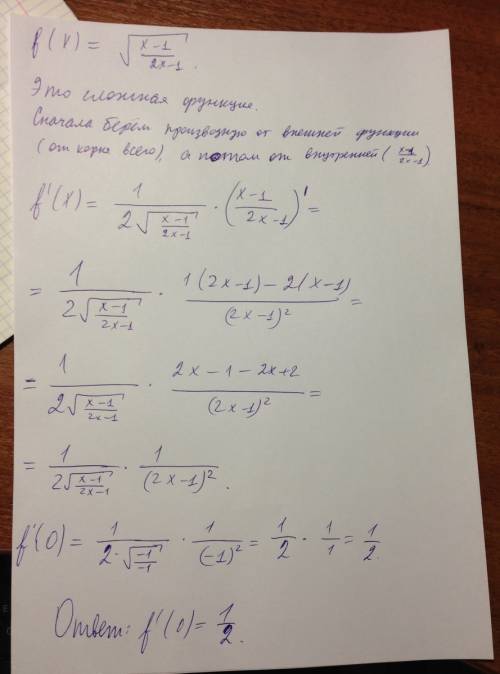 f(x) = √((x-1)/(2x-1)).
Это сложная функция.
Сначала берём производную от внешней функции
(от корня всего), а потом от внутренней ((x-1)/(2x-1))
f'(x) = 1/(2√((x-1)/(2x-1))) · ((x-1)/(2x-1))' =
= 1/(2√((x-1)/(2x-1))) · (1(2x-1)-2(x-1))/(2x-1)² =
= 1/(2√((x-1)/(2x-1))) · (2x-1-2x+2)/(2x-1)² =
= 1/(2√((x-1)/(2x-1))) · 1/(2x-1)².
f'(0) = 1/(2·√(-1/-1)) · 1/(-1)² = 1/2 · 1/1 = 1/2.
Ответ: f'(0) = 1/2.